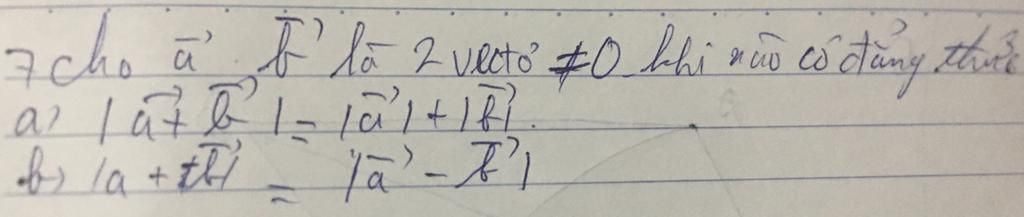 7 cho a⃗ b⃗ là 2 vectơ ≠0 khi nào có đẳng thức
a) |a⃗ + b⃗| = |a⃗| + |b⃗|.
b) |a + b⃗| = |a⃗ - b⃗|